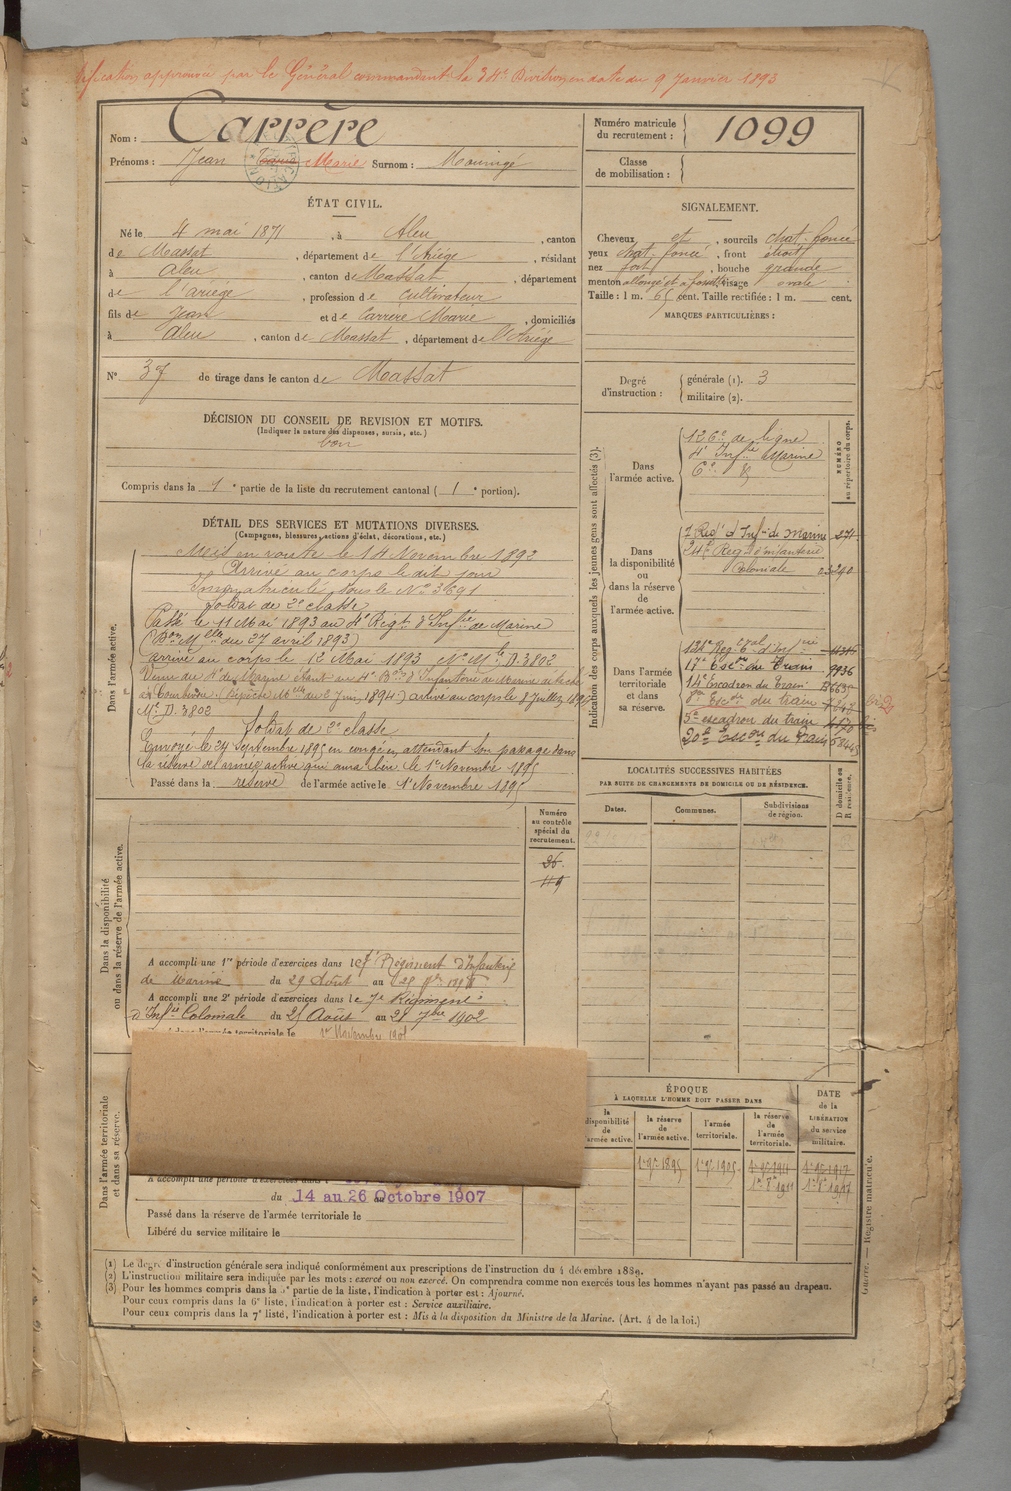 ification approuvée par le Général commandant la 34e Division en date du 9 Janvier 1893
Nom : Carrère
Prénoms : Jean Marie Surnom : Mouninge
Numéro matricule du recrutement : 1099
Classe de mobilisation :
ÉTAT CIVIL.
Né le 4 mai 1871, à Aleu, canton
de Massat, département de l'Ariége, résidant
à Aleu, canton de Massat, département
de l'ariége, profession de cultivateur
fils de Jean et de Carrere Marie, domiciliés
à Aleu, canton de Massat, département de l'Ariége
No 37 de tirage dans le canton de Massat
SIGNALEMENT.
Cheveux et, sourcils chat. foncé
yeux chat. foncé, front étroit
nez fort, bouche grande
menton allongé et à fossette, visage ovale
Taille : 1 m. 65 cent. Taille rectifiée : 1 m. cent.
MARQUES PARTICULIÈRES :
Degré d'instruction : générale (1). 3
militaire (2).
DÉCISION DU CONSEIL DE REVISION ET MOTIFS.
(Indiquer la nature des dispenses, sursis, etc.)
bon
Compris dans la 1e partie de la liste du recrutement cantonal (1e portion).
DÉTAIL DES SERVICES ET MUTATIONS DIVERSES.
(Campagnes, blessures, actions d'éclat, décorations, etc.)
Dans l'armée active.
Mis en route le 14 Novembre 1892
Arrivé au corps le dit jour
Immatriculé sous le No 3691
Soldat de 2e classe
Passé le 11 Mai 1893 au 4e Régt d'Infie de Marine
(Bon Mlle du 27 avril 1893)
arrivé au corps le 12 Mai 1893 No Mle D. 3802
arrivé au corps le 8 Juillet 1894
Mle D. 3802
Soldat de 2e classe
Envoyé le 24 Septembre 1895 en congé en attendant son passage dans
la réserve de l'armée active qui aura lieu le 1er Novembre 1895
Passé dans la réserve de l'armée active le 1er Novembre 1895
Indication des corps auxquels les jeunes gens sont affectés (3).
NUMÉRO au répertoire du corps.
Dans l'armée active.
126e de ligne
4e Infie Marine
6e &
Dans la disponibilité ou dans la réserve de l'armée active.
7 Regt d'Infie de Marine 271
24e Regt d'infanterie
Coloniale 03240
Dans l'armée territoriale et dans sa réserve.
17e Escon du Train 9936
14e Escadron du Train
8e Escon du train
5e escadron du train
20e Escon du Train
LOCALITÉS SUCCESSIVES HABITÉES
PAR SUITE DE CHANGEMENTS DE DOMICILE OU DE RÉSIDENCE.
Dates. Communes. Subdivisions de région. D domicile ou R résidence.
Numéro au contrôle spécial du recrutement.
36.
119
Dans la disponibilité ou dans la réserve de l'armée active.
A accompli une 1re période d'exercices dans le 7e Régiment d'Infanterie
de Marine du 29 Août au 25
A accompli une 2e période d'exercices dans le 7e Régiment
d'Infie Coloniale du 25 Août au 21 7bre 1902
l'armée territoriale le 1er Novembre 1905
Dans l'armée territoriale et dans sa réserve.
A accompli une période d'exercices dans
du 14 au 26 Octobre 1907
Passé dans la réserve de l'armée territoriale le
Libéré du service militaire le
ÉPOQUE
À LAQUELLE L'HOMME DOIT PASSER DANS
la disponibilité de l'armée active. la réserve de l'armée active. l'armée territoriale. la réserve de l'armée territoriale.
DATE de la LIBÉRATION du service militaire.
1er 9e 1895 1er 9e 1905 1er 9e 1911 1er 9e 1917
1er 8e 1911 1er 8e 1917
Guerre. — Registre matricule.
(1) Le degré d'instruction générale sera indiqué conformément aux prescriptions de l'instruction du 4 décembre 1889.
(2) L'instruction militaire sera indiquée par les mots : exercé ou non exercé. On comprendra comme non exercés tous les hommes n'ayant pas passé au drapeau.
(3) Pour les hommes compris dans la 5e partie de la liste, l'indication à porter est : Ajourné.
Pour ceux compris dans la 6e liste, l'indication à porter est : Service auxiliaire.
Pour ceux compris dans la 7e liste, l'indication à porter est : Mis à la disposition du Ministre de la Marine. (Art. 4 de la loi.)